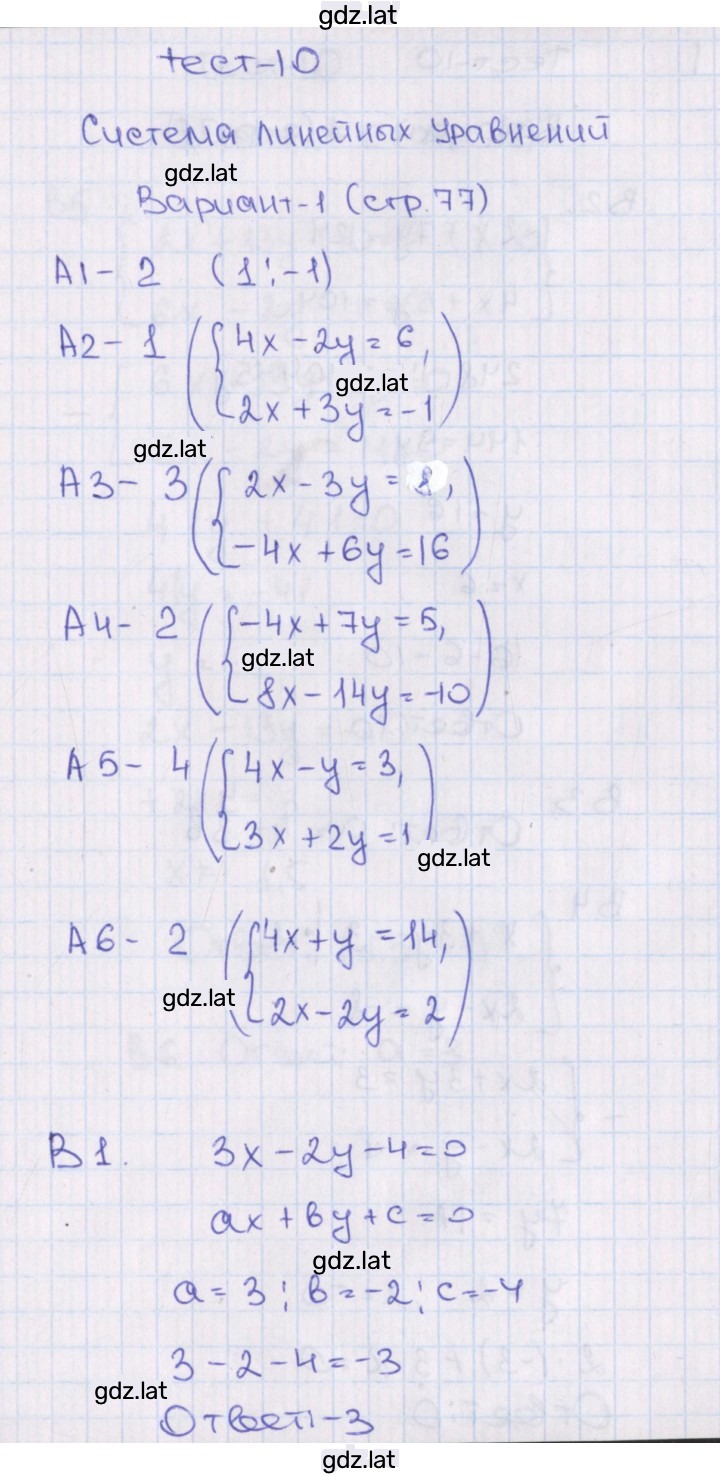 gdz.lat
тест-10
Система линейных уравнений
gdz.lat
Вариант-1 (стр.77)
А1- 2 (1;-1)
А2- 1 ({4x-2y=6,
gdz.lat
2x+3y=-1)
gdz.lat
А3- 3 ({2x-3y=8,
-4x+6y=16)
А4- 2 ({-4x+7y=5,
gdz.lat
8x-14y=-10)
А5- 4 ({4x-y=3,
3x+2y=1)
gdz.lat
А6- 2 ({4x+y=14,
gdz.lat
2x-2y=2)
В1. 3x-2y-4=0
ax+by+c=0
gdz.lat
a=3; b=-2; c=-4
3-2-4=-3
gdz.lat
Ответ: -3
gdz.lat